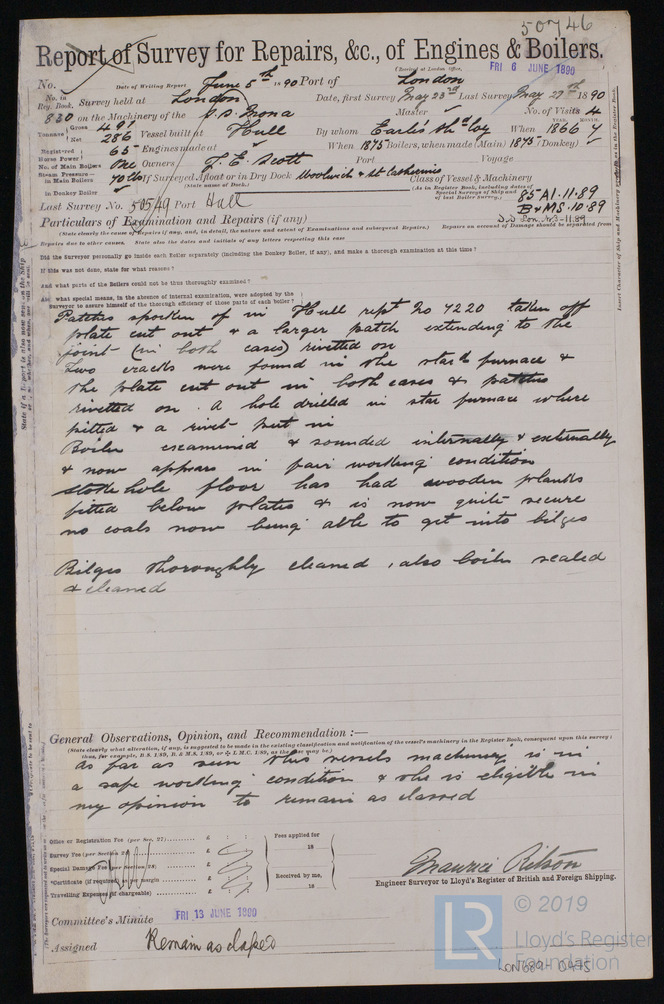 50746
Report of Survey for Repairs, &c., of Engines & Boilers.
(Received at London Office,
FRI 6 JUNE 1890
No. Date of Writing Report June 5th 1890 Port of London
No. in Reg. Book. Survey held at London Date, first Survey May 23rd Last Survey May 29th 1890
830 on the Machinery of the S.S. Mona Master No. of Visits 4
Tonnage Gross 497 Net 286 Vessel built at Hull By whom Earles Co When 1866 YEAR. MONTH.
Registered Horse Power 65 Engines made at When 1873 Boilers, when made (Main) 1873 (Donkey)
No. of Main Boilers One Owners T. E. Scott Port Voyage
Steam Pressure in Main Boilers 70 lbs If Surveyed Afloat or in Dry Dock Woolwich & St Catherines Class of Vessel & Machinery
(State name of Dock.) (As in Register Book, including dates of Special Surveys of Ship and of last Boiler Survey.)
in Donkey Boiler
85 A1. 11.89
B&MS. 10.89
Last Survey No. 50549 Port Hull
Particulars of Examination and Repairs (if any)
(State clearly the cause of Repairs if any, and, in detail, the nature and extent of Examinations and subsequent Repairs.) Repairs on account of Damage should be separated from
Repairs due to other causes. State also the dates and initials of any letters respecting this case
Did the Surveyor personally go inside each Boiler separately (including the Donkey Boiler, if any), and make a thorough examination at this time?
If this was not done, state for what reasons?
And what parts of the Boilers could not be thus thoroughly examined?
Also what special means, in the absence of internal examination, were adopted by the Surveyor to assure himself of the thorough efficiency of those parts of each boiler?
Patches spocken of in Hull rept No 4220 taken off
plate cut out & a larger patch extending to the
joint (in both cases) rivetted on
Two cracks were found in the starbd furnace &
the plate cut out in both cases & patches
rivetted on. A hole drilled in star furnace where
pitted & a rivet put in
Boiler examined & sounded internally & externally
& now appears in fair working condition
stoke hole floor has had wooden planks
fitted below plates & is now quite secure
no coals now being able to get into bilges
Bilges thoroughly cleaned, also boiler scaled
& cleaned
General Observations, Opinion, and Recommendation:—
(State clearly what alteration, if any, is suggested to be made in the existing classification and notification of the vessel's machinery in the Register Book, consequent upon this survey;
thus, for example, B.S. 1/89, B. & M.S. 1/89, or L.M.C. 1/89, as the case may be.)
As far as seen this vessels machinery is in
a safe working condition & she is eligible in
my opinion to remain as classed
Office or Registration Fee (per Sec. 27) £ : : Fees applied for
Survey Fee (per Section 28) £ 18
Special Damage Fee (per Section 28) £
*Certificate (if required) as per margin £ Received by me,
Travelling Expenses (if chargeable) £ 18
Maurice Ritson
Engineer Surveyor to Lloyd's Register of British and Foreign Shipping.
Committee's Minute FRI 13 JUNE 1890
Assigned Remain as classed
LR © 2019
Lloyd's Register
Foundation
LON689-0475